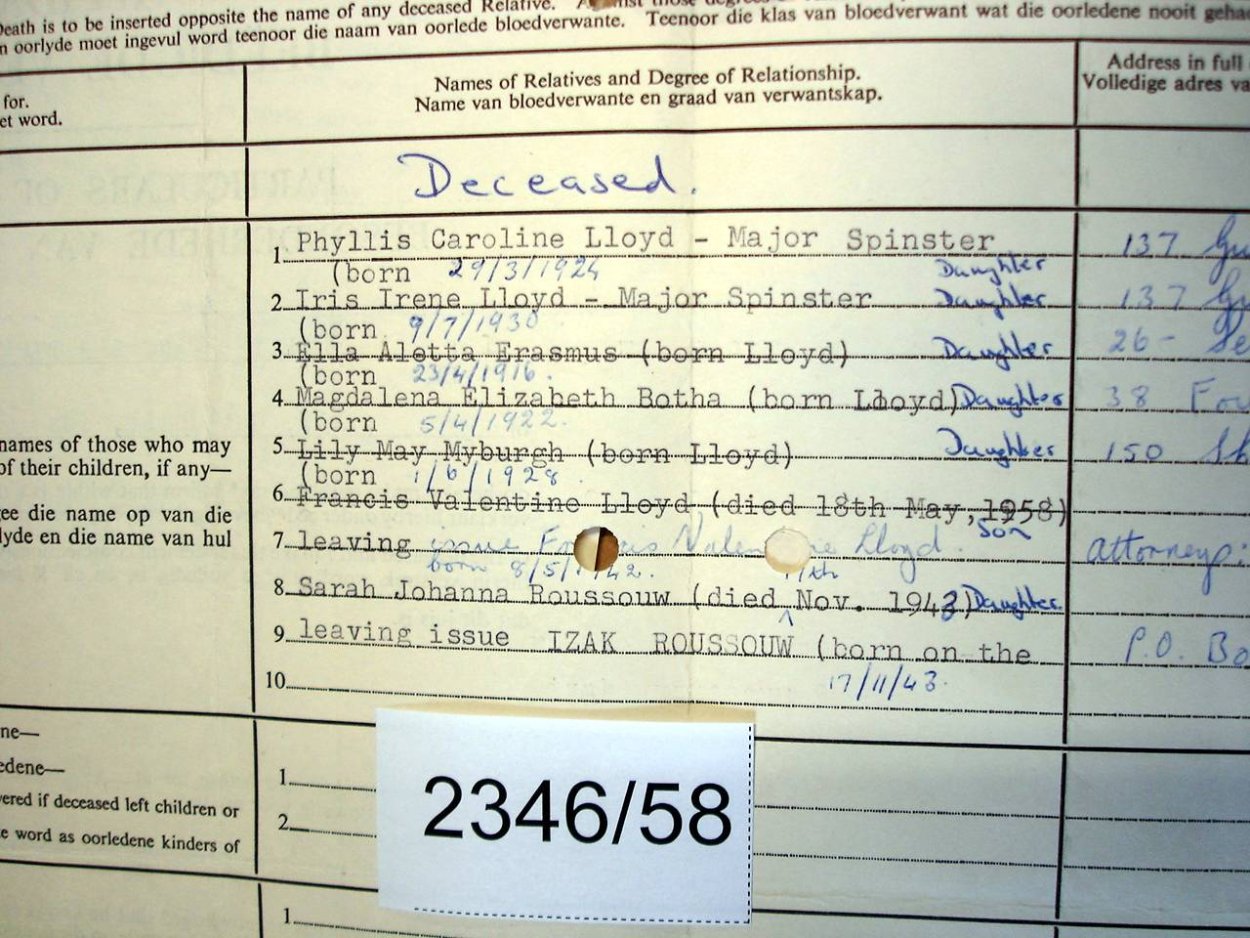 Death is to be inserted opposite the name of any deceased Relative.
n oorlyde moet ingevul word teenoor die naam van oorlede bloedverwante. Teenoor die klas van bloedverwant wat die oorledene nooit geha
for.
et word.
Names of Relatives and Degree of Relationship.
Name van bloedverwante en graad van verwantskap.
Address in full
Volledige adres va
Deceased.
1. Phyllis Caroline Lloyd - Major Spinster 137
(born 29/3/1924 Daughter
2 Iris Irene Lloyd - Major Spinster Daughter 137
(born 9/7/1930
3. Ella Aletta Erasmus (born Lloyd) Daughter 26-
(born 23/4/1916.
4 Magdalena Elizabeth Botha (born Lloyd) Daughter 38
(born 5/4/1922.
5. Lily May Myburgh (born Lloyd) Daughter 150
(born 1/6/1928.
6. Francis Valentine Lloyd (died 18th May, 1958)
Son
7. leaving issue Lloyd. attorneys:
born 8/5/
8. Sarah Johanna Roussouw (died 11th Nov. 1943) Daughter
9. leaving issue IZAK ROUSSOUW (born on the P.O. Bo
17/11/43.
10.
names of those who may
of their children, if any—
ee die name op van die
lyde en die name van hul
ne—
edene—
vered if deceased left children or
e word as oorledene kinders of
1.
2.
2346/58
1.